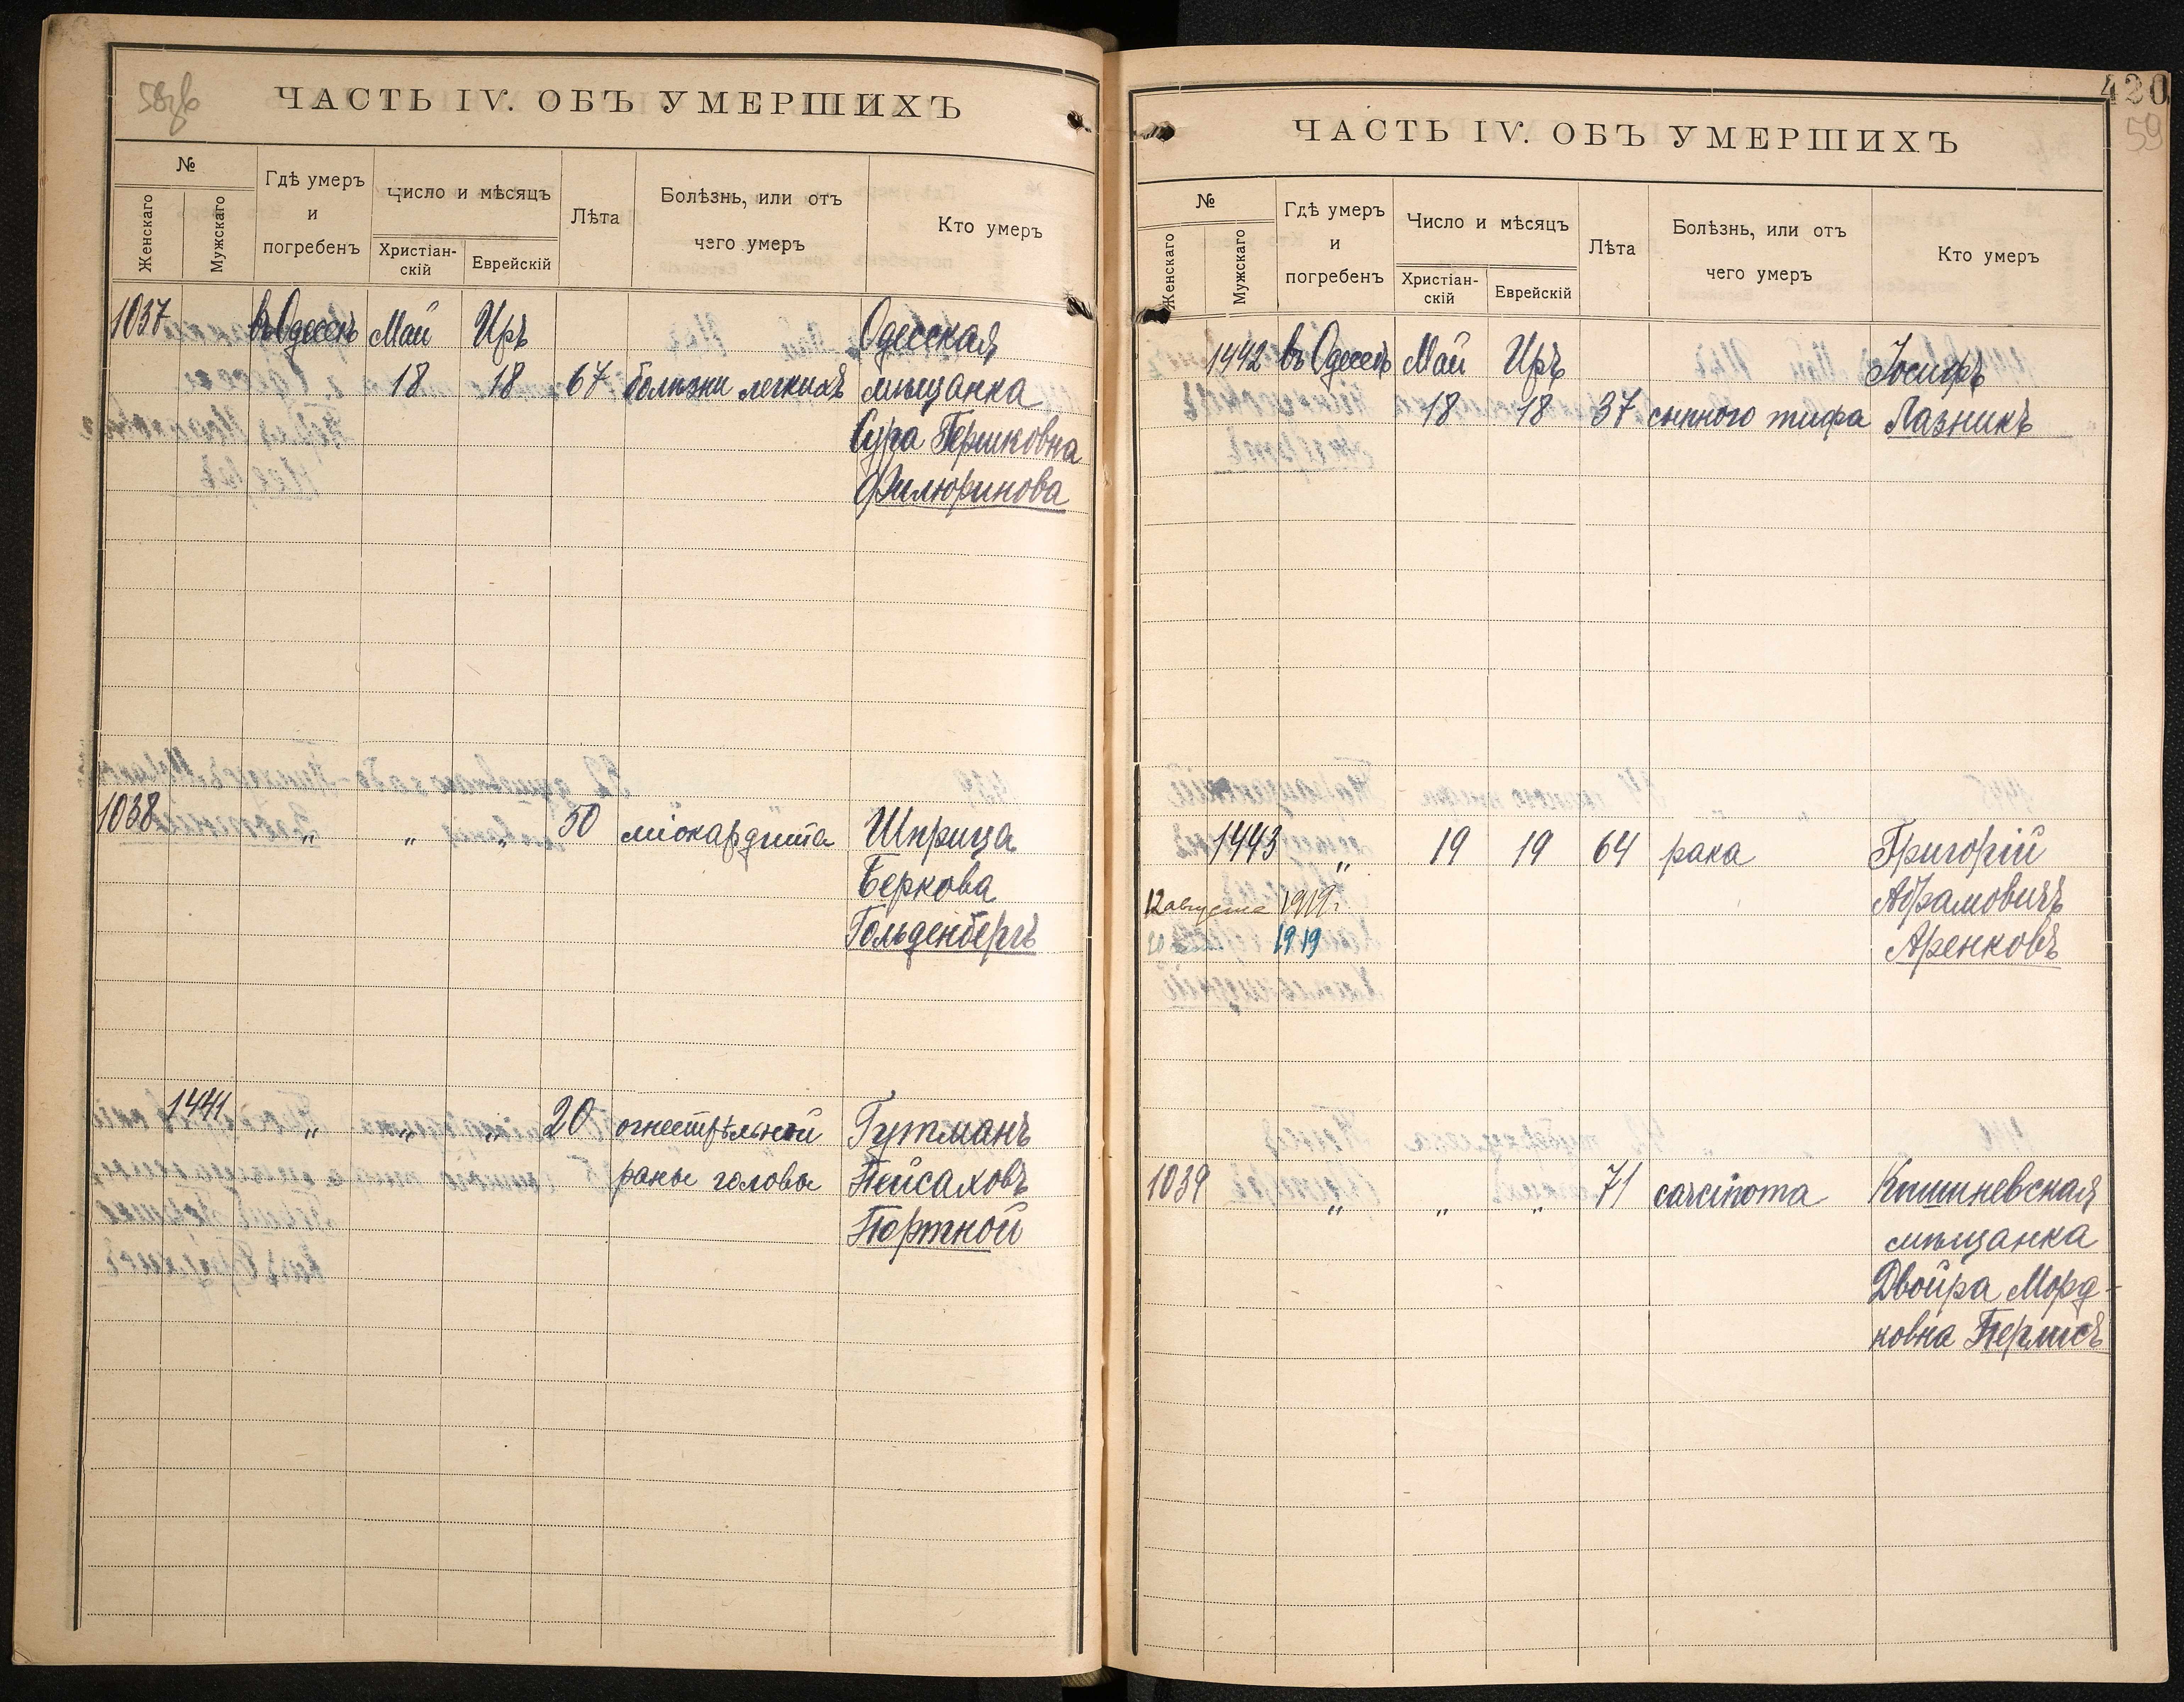 58об
ЧАСТЬ IV. ОБЪ УМЕРШИХЪ
№
Женскаго
Мужскаго
Гдѣ умеръ
и
погребенъ
Число и мѣсяцъ
Христіан-
скій
Еврейскій
Лѣта
Болѣзнь, или отъ
чего умеръ
Кто умеръ
1037 въ Одессѣ Май Иръ Одесская
18 18 67 болѣзни легкихъ мѣщанка
Сура Гершковна
Филюринова
1038 " " " 50 міокардита Шприца
Беркова
Гольденбергъ
1441 " " " 20 огнестрѣльной Гутманъ
раны головы Пейсаховъ
Портной
420
59
ЧАСТЬ IV. ОБЪ УМЕРШИХЪ
№
Женскаго
Мужскаго
Гдѣ умеръ
и
погребенъ
Число и мѣсяцъ
Христіан-
скій
Еврейскій
Лѣта
Болѣзнь, или отъ
чего умеръ
Кто умеръ
1442 въ Одессѣ Май Иръ Іосифъ
18 18 37 сыпного тифа Лазникъ
1443 " 19 19 64 рака Григорій
12 августа 1919 г. Абрамовичъ
1919 Аренковъ
1039 " " " 71 carcinoma Кишиневская
мѣщанка
Двойра Морд-
ковна Перлисъ